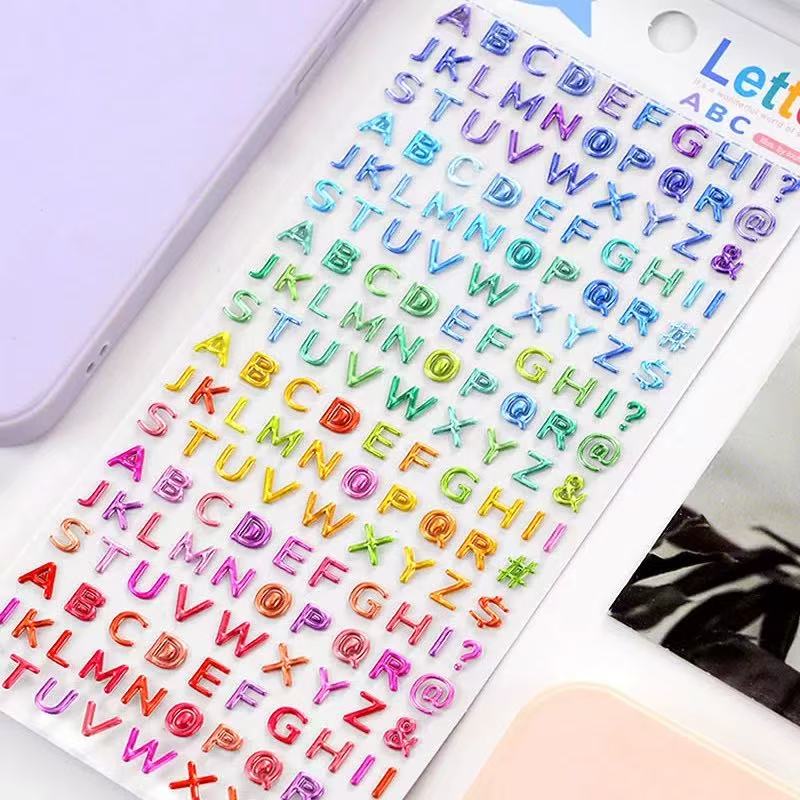 Lette
It's a wonderful world of
ABC
A B C D E F G H I ?
J K L M N O P Q R @
S T U V W X Y Z &
A B C D E F G H I I
J K L M N O P Q R #
S T U V W X Y Z $
A B C D E F G H I ?
J K L M N O P Q R @
S T U V W X Y Z &
A B C D E F G H I I
J K L M N O P Q R #
S T U V W X Y Z $
A B C D E F G H I ?
J K L M N O P Q R @
S T U V W X Y Z &
A B C D E F G H I I
J K L M N O P Q R
T U V W X